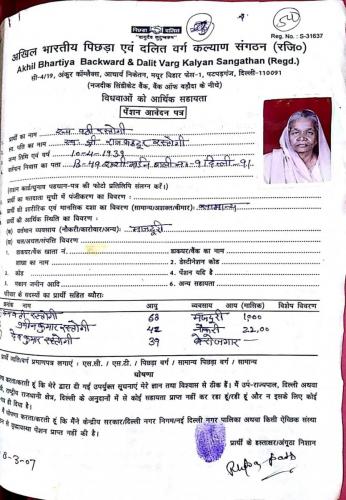 पिछड़ा दलित
Reg. No.: S-31637
अखिल भारतीय पिछड़ा एवं दलित वर्ग कल्याण संगठन (रजि०)
Akhil Bhartiya Backward & Dalit Varg Kalyan Sangathan (Regd.)
सी-4/19, अंकुर कॉम्पलैक्स, आचार्य निकेतन, मयूर विहार फेस-1, पटपड़गंज, दिल्ली-110091
(नजदीक सिंडीकेट बैंक, बैंक ऑफ बड़ौदा के नीचे)
विधवाओं को आर्थिक सहायता
पेंशन आवेदन पत्र
प्रार्थी का नाम
स्व. पति का नाम
जन्म तिथि एवं वर्ष 10-4-1939
वर्तमान निवास का पता B-49 दिल्ली-91
(राशन कार्ड/चुनाव पहचान-पत्र की फोटो प्रतिलिपि संलग्न करें।)
प्रार्थी का मतदाता सूची में पंजीकरण का विवरण :
प्रार्थी की शारीरिक एवं मानसिक दशा का विवरण (सामान्य/अशक्त/बीमार): सामान्य
प्रार्थी की आर्थिक स्थिति का विवरण :
(अ) वर्तमान व्यवसाय (नौकरी/कारोबार/अन्य): मजदूरी
(ब) चल/अचल/संपत्ति विवरण
1. डाकघर/बैंक खाता नं. डाकघर/बैंक का नाम
शाखा का नाम 2. डेस्टीनेशन कोड
3. कोड 4. पेंशन यदि है
5. मकान जमीन आदि 6. अन्य सहायता
परिवार के सदस्यों का प्रार्थी सहित ब्यौरा:
क्रमांक नाम आयु व्यवसाय आय (मासिक) विशेष विवरण
रस्तोगी 68 मजदूरी
कुमार रस्तोगी 42 नौकरी
कुमार रस्तोगी 39 बेरोजगार
प्रार्थी जाति/वर्ग प्रमाणपत्र लगाएं : एस.सी. / एस.टी. / पिछड़ा वर्ग / सामान्य पिछड़ा वर्ग / सामान्य
घोषणा
करता/करती हूं कि मेरे द्वारा दी गई उपर्युक्त सूचनाएं मेरे ज्ञान तथा विश्वास से ठीक हैं। मैं उप-राज्यपाल, दिल्ली अथवा
राष्ट्रीय राजधानी क्षेत्र, दिल्ली के अनुदानों में से कोई सहायता प्राप्त नहीं कर रहा हूं/रही हूं और न इसके लिए कोई
ही दिया है।
घोषणा करता/करती हूं कि मैंने केन्द्रीय सरकार/दिल्ली नगर निगम/नई दिल्ली नगर पालिका अथवा किसी ऐच्छिक संस्था
से वृद्धावस्था पेंशन प्राप्त नहीं की है।
प्रार्थी के हस्ताक्षर/अंगूठा निशान
8-3-07